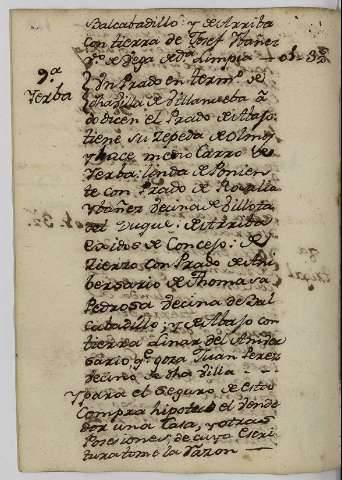 Balcabadillo: y de Arriba
con tierra de Josef Ybañez
Vº de Vega de Dª Limpia
9.ª
Yerba
Un Prado en termº de
dha Villa de Villanueba a
do dicen el Prado de Abajo:
tiene su Zepeda de Olmos
y hace medio Carro de
Yerba: linda de Ponien
te con Prado de Rosalia
Ybañez vecina de Villota
del Duque: de Arriba
Exidos de Concejo: de
Zierzo con Prado de Ani
bersario de Thomasa
Pedrosa vecina de Bal
cabadillo; y de Abajo con
tierra Linar del Aniver
sario qº goza Juan Perez
vecino de dha Villa
y para el seguro de esta
Compra hipoteco el vende
dor una Casa, y otras
Posesiones, de cuya Escri
tura tome la Razon